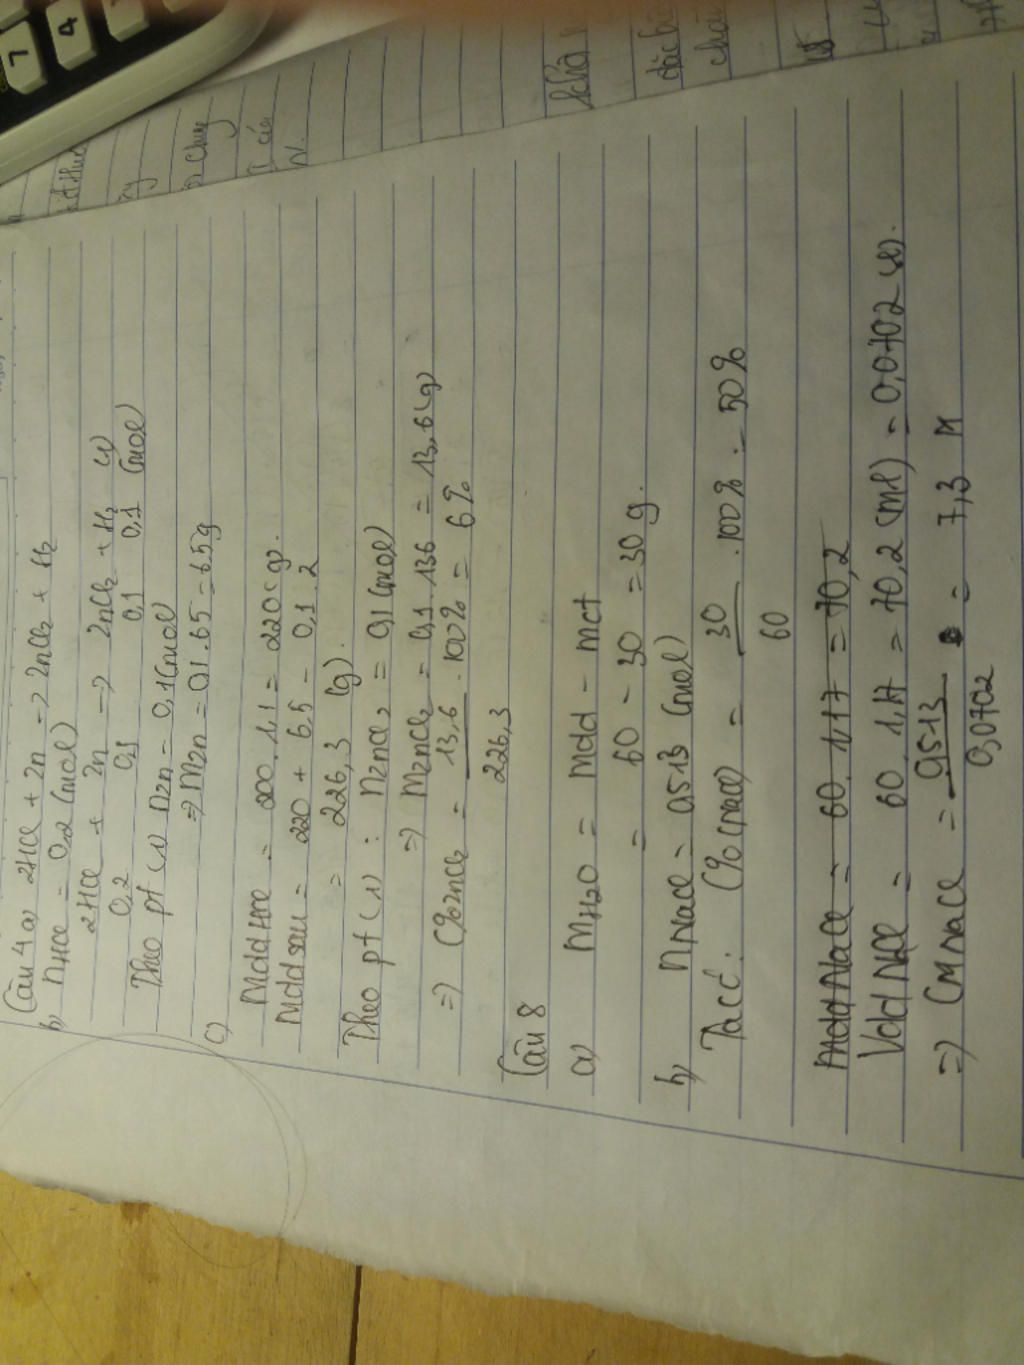 Câu 4 a) 2HCl + Zn → ZnCl₂ + H₂
b) nHCl = 0,2 (mol)
2HCl + Zn → ZnCl₂ + H₂ (1)
0,2 0,1 0,1 0,1 (mol)
Theo pt (1) nZn = 0,1 (mol)
⇒ MZn = 0,1.65 = 6,5g
c)
MddHCl = 200.1,1 = 220 (g).
Mddsau = 220 + 6,5 - 0,1.2
= 226,3 (g).
Theo pt (1) : nZnCl₂ = 0,1 (mol)
⇒ MZnCl₂ = 0,1.136 = 13,6 (g)
⇒ C%ZnCl₂ = 13,6 .100% = 6%
226,3
Câu 8
a) MH₂O = Mdd - mct
= 60 - 30 = 30g.
b) nNaCl = 0,513 (mol)
Tacć: C%(NaCl) = 30 .100% = 50%
60
MddNaCl = 60.1,17 = 70,2
VddNaCl = 60.1,17 = 70,2 (ml) = 0,0702 (l).
⇒ CMNaCl = 0,513 = 7,3 M
0,0702
7
4